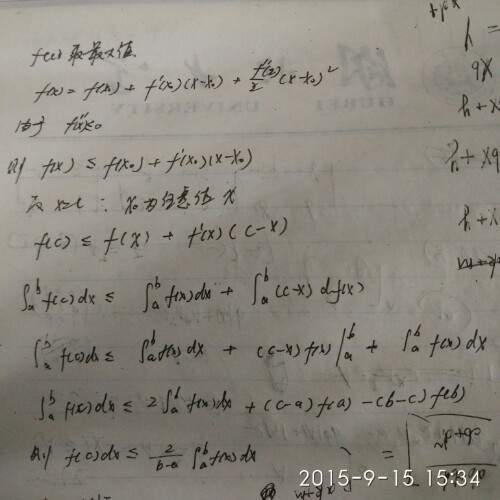 f(c) 取最大值
f(x) = f(x₀) + f'(x₀)(x-x₀) + f''(ξ)/2 (x-x₀)²
由于 f''(x)<0
则 f(x) ≤ f(x₀) + f'(x₀)(x-x₀)
取 x=c : x₀为任意值 x
f(c) ≤ f(x) + f'(x)(c-x)
∫ₐᵇ f(c)dx ≤ ∫ₐᵇ f(x)dx + ∫ₐᵇ (c-x) df(x)
∫ₐᵇ f(c)dx ≤ ∫ₐᵇ f(x)dx + (c-x)f(x)|ₐᵇ + ∫ₐᵇ f(x)dx
∫ₐᵇ f(x)dx ≤ 2∫ₐᵇ f(x)dx + (c-a)f(a) - (b-c)f(b)
则 f(c)dx ≤ 2/(b-a) ∫ₐᵇ f(x)dx
2015-9-15 15:34